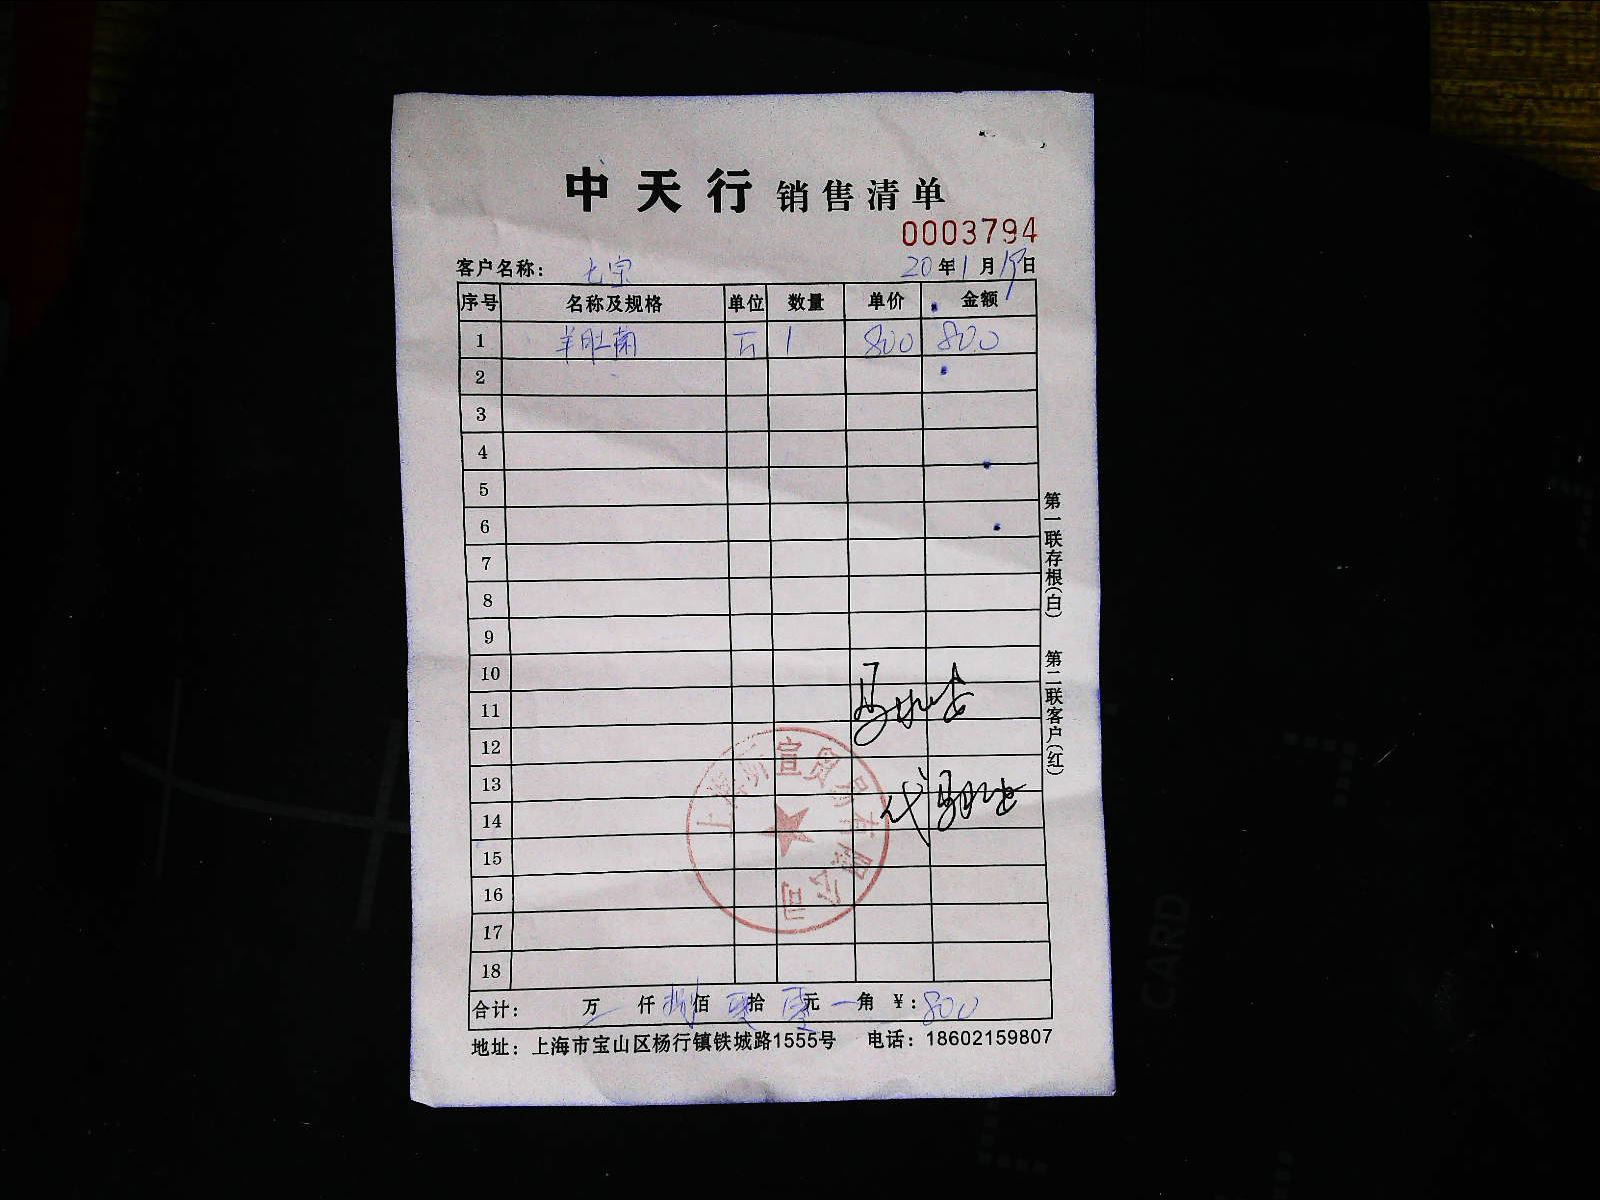 中天行 销售清单
0003794
客户名称： 七宗 20年1月19日
序号 名称及规格 单位 数量 单价 金额
1 羊肚菌 斤 1 800 800
2
3
4
5
6
7
8
9
10
11
12
13
14
15
16
17
18
合计： 万 一 仟 捌 佰 零 拾 零 元 一 角 ￥：800
地址：上海市宝山区杨行镇铁城路1555号 电话：18602159807
第一联存根（白） 第二联客户（红）
宣贸易有限公司